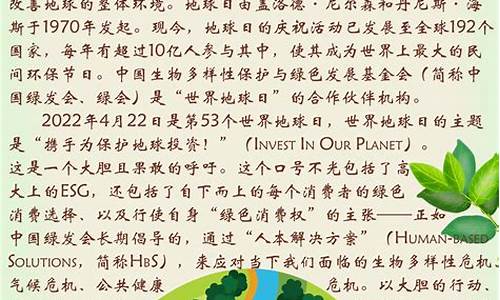 改善地球的整体环境。地球日由盖洛德·尼尔森和丹尼斯·海
斯于1970年发起。现今，地球日的庆祝活动已发展至全球192个
国家，每年有超过10亿人参与其中，使其成为世界上最大的民
间环保节日。中国生物多样性保护与绿色发展基金会（简称中
国绿发会、绿会）是“世界地球日”的合作伙伴机构。
2022年4月22日是第53个世界地球日，世界地球日的主题
是“携手为保护地球投资！”（INVEST IN OUR PLANET）。
这是一个大胆且果敢的呼吁。这个口号不光包括了高
大上的ESG，还包括了自下而上的每个消费者的绿色
消费选择、以及行使自身“绿色消费权”的主张——正如
中国绿发会长期倡导的，通过“人本解决方案”（HUMAN-BASED
SOLUTIONS，简称HBS），来应对当下我们面临的生物多样性危机、
气候危机、公共健康危机。以大胆的行动、